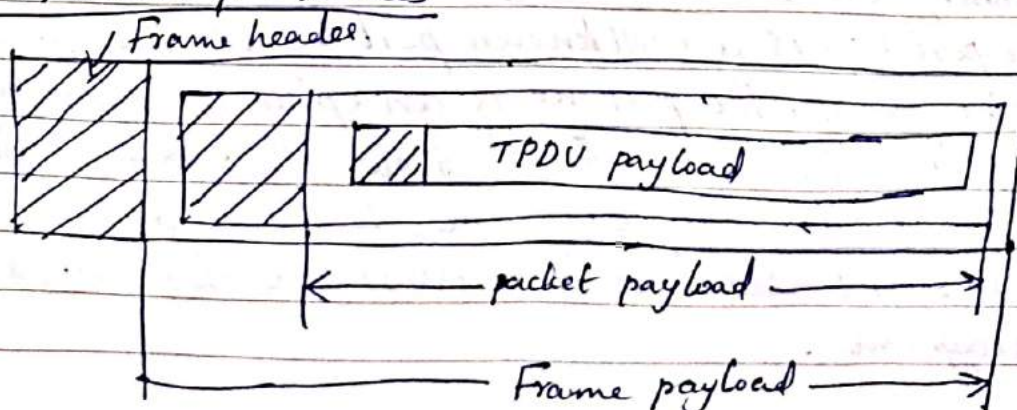 Frame header
TPDU payload
packet payload
Frame payload